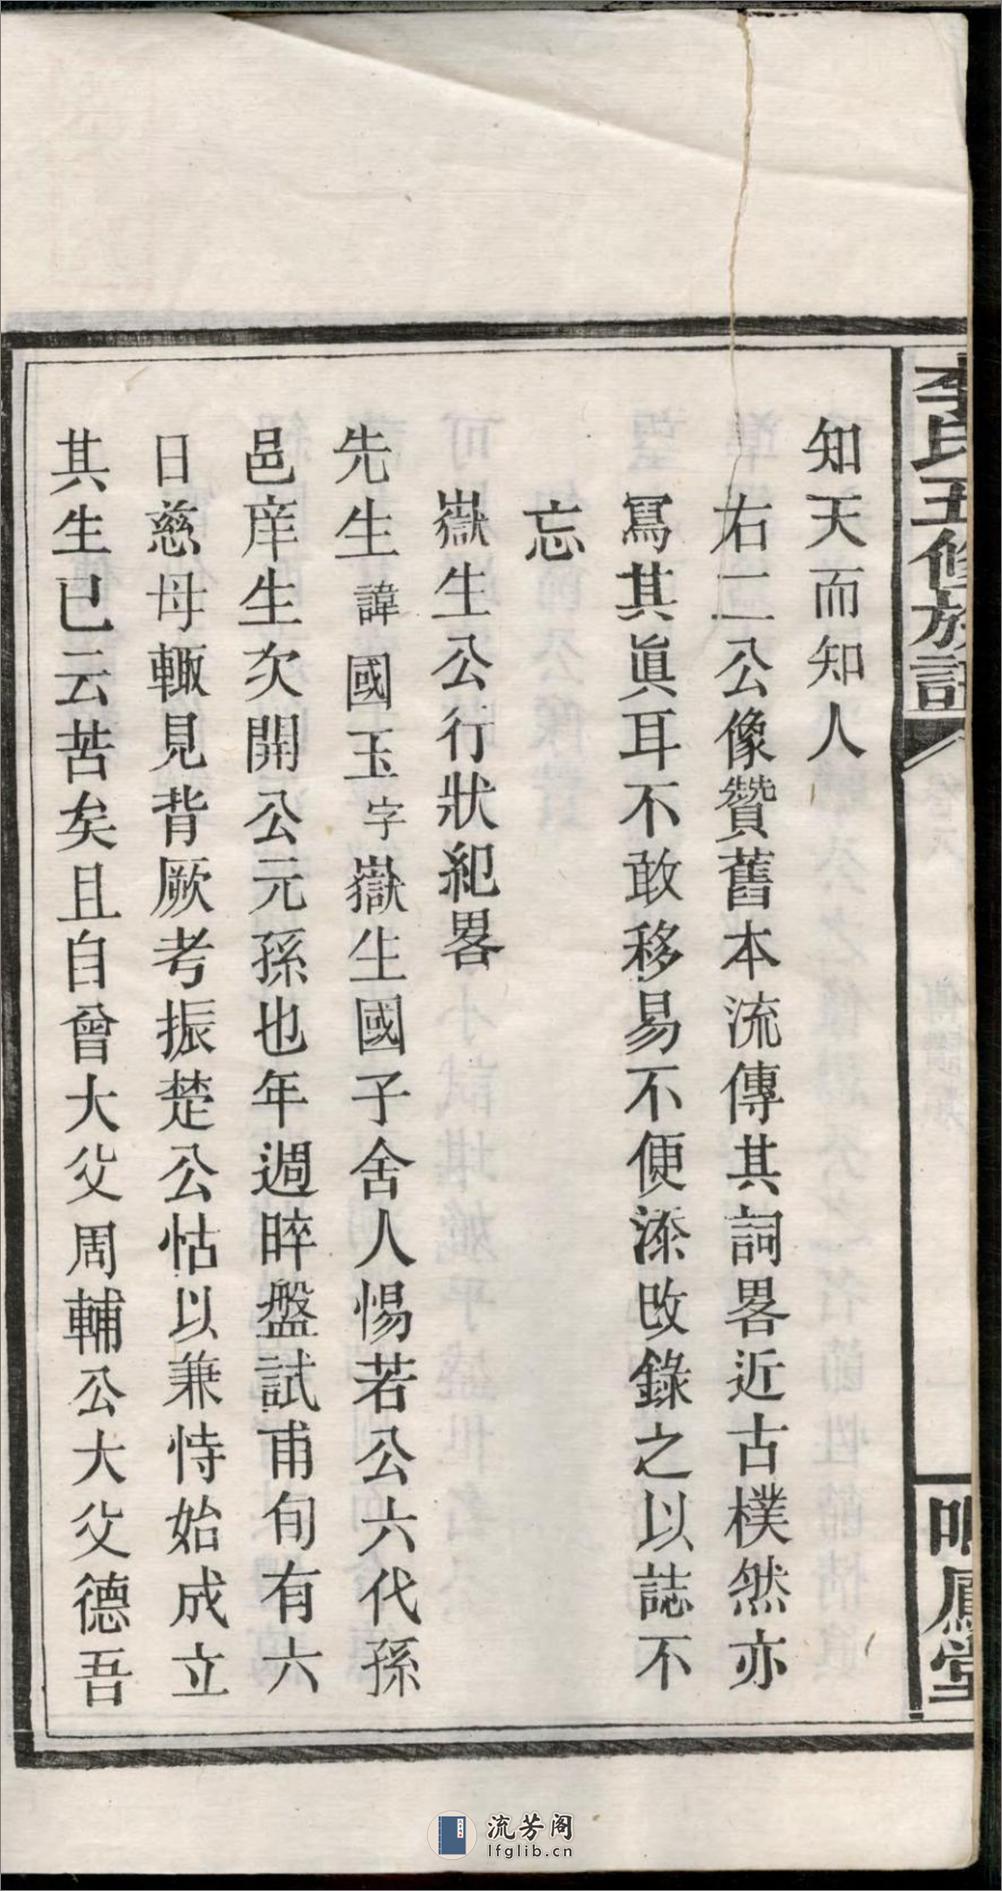 李氏五修族譜
卷六
傳贊類
鳴鳳堂
知天而知人
右二公像贊舊本流傳其詞畧近古樸然亦
寫其眞耳不敢移易不便添改錄之以誌不
忘
嶽生公行狀紀畧
先生諱國玉字嶽生國子舍人惕若公六代孫
邑庠生次開公元孫也年週晬盤試甫旬有六
日慈母輙見背厥考振楚公怙以兼恃始成立
其生已云苦矣且自曾大父周輔公大父德吾
流芳阁
lfglib.cn